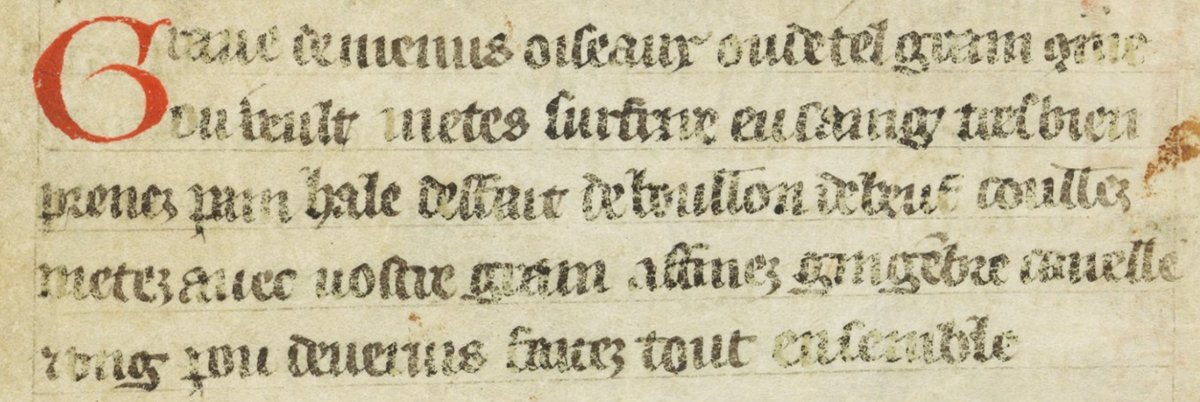 Grane de menus oiseaux ou de tel grain que
ou veult metes sur frire en saing tresbien
prenez pain hale deffait de boullon de beuf coullez
metez auec uostre grain affinez gingebre canelle
vong pou de veruis faites tout ensemble